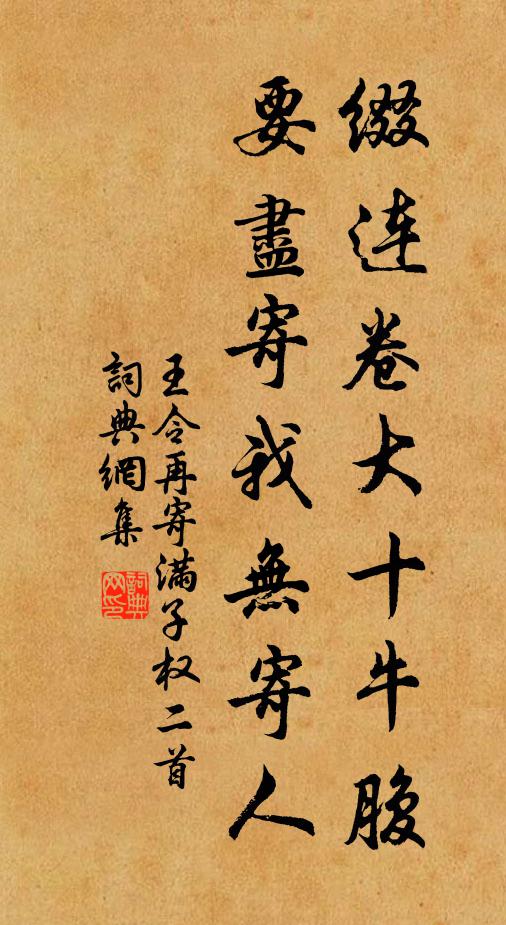 缀連卷大十牛腹
要盡寄我無寄人
王令再寄滿子权二首
詞典網集
詞典网印